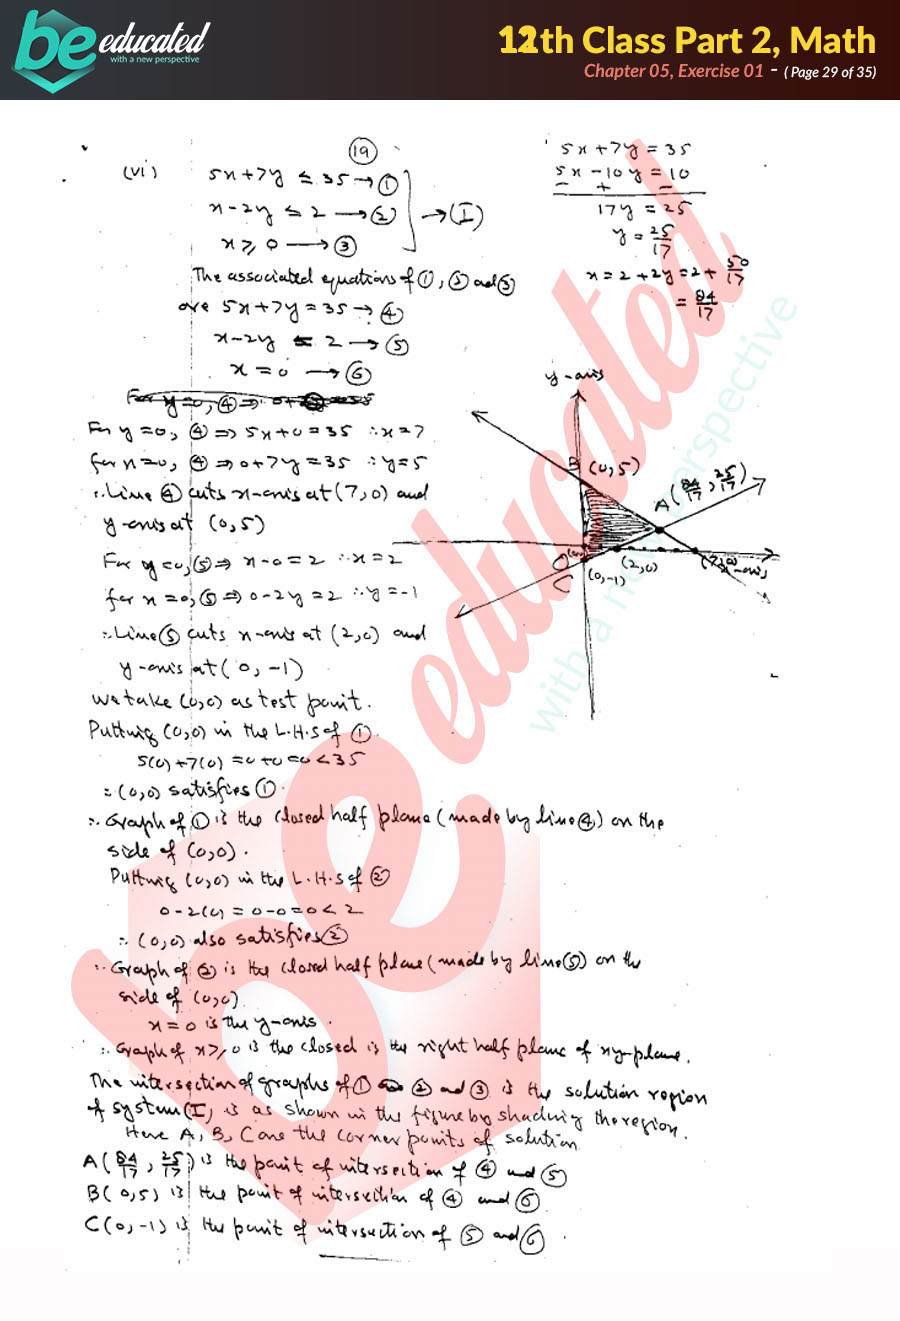 be educated
with a new perspective
12th Class Part 2, Math
Chapter 05, Exercise 01 - ( Page 29 of 35)
19
(vi) 5x+7y ≤ 35 → ①
x-2y ≤ 2 → ② → (I)
x ≥ 0 → ③
The associated equations of ①, ② and ③
are 5x+7y = 35 → ④
x-2y = 2 → ⑤
x = 0 → ⑥
For y=0, ④ ⇒ 5x+0=35 ∴ x=7
for x=0, ④ ⇒ 0+7y=35 ∴ y=5
∴ Line ④ cuts x-axis at (7,0) and
y-axis at (0,5)
For y=0, ⑤ ⇒ x-0=2 ∴ x=2
for x=0, ⑤ ⇒ 0-2y=2 ∴ y=-1
∴ Line ⑤ cuts x-axis at (2,0) and
y-axis at (0,-1)
We take (0,0) as test point.
Putting (0,0) in the L.H.S of ①
5(0)+7(0) = 0+0=0<35
∴ (0,0) satisfies ①.
∴ Graph of ① is the closed half plane (made by line ④) on the
side of (0,0).
Putting (0,0) in the L.H.S of ②
0-2(0) = 0-0=0<2
∴ (0,0) also satisfies ②
∴ Graph of ② is the closed half plane (made by line ⑤) on the
side of (0,0)
x=0 is the y-axis.
∴ Graph of x≥0 is the closed is the right half plane of xy-plane.
The intersection of graphs of ① ② and ③ is the solution region
of system (I) is as shown in the figure by shading the region.
Here A, B, C are the corner points of solution
A(84/17, 25/17) is the point of intersection of ④ and ⑤
B(0,5) is the point of intersection of ④ and ⑥
C(0,-1) is the point of intersection of ⑤ and ⑥.
5x+7y = 35
5x-10y = 10
- + -
17y = 25
y = 25/17
x = 2+2y = 2+ 50/17
= 84/17
y-axis
B (0,5)
A(84/17, 25/17)
O
C (0,-1)
(2,0)
(7,0)
x-axis
be educated
with a new perspective